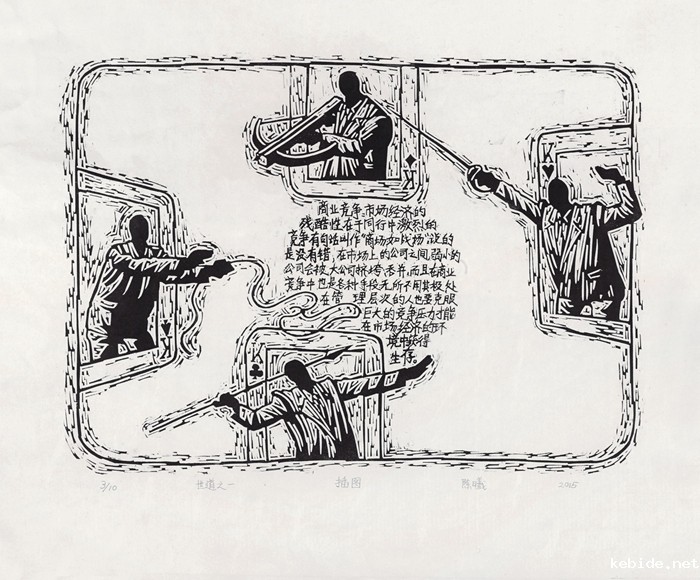 K
K
商业竞争。市场经济的
残酷性在于同行中激烈的
竞争有句话叫作"商场如战场"说的
是没有错,在市场上的公司之间,弱小的
公司会被大公司挤垮吞并,而且在商业
竞争中也是各种手段无所不用其极,处
在管理层次的人也要克服
巨大的竞争压力才能
在市场经济的环
境中获得
生存。
K
K
3/10 世道之一 插图 2005
kebide.net